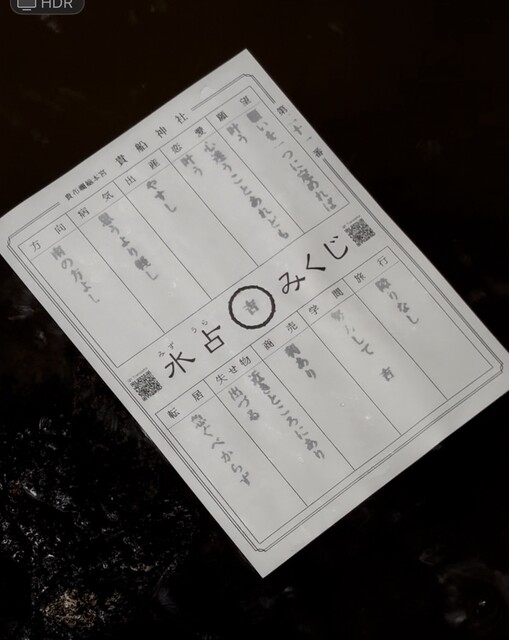 HDR
第二十二番
貴船神社
貴布禰総本宮
願望
願いを一つに定めれば
叶う
恋愛
心迷うことあれども
叶う
出産
やすし
病気
思うより軽し
方向
南の方よし
水占みくじ
みずうら
吉
旅行
障りなし
学問
努力して 吉
商売
利あり
失せ物
近きところにあり
出づる
転居
急ぐべからず